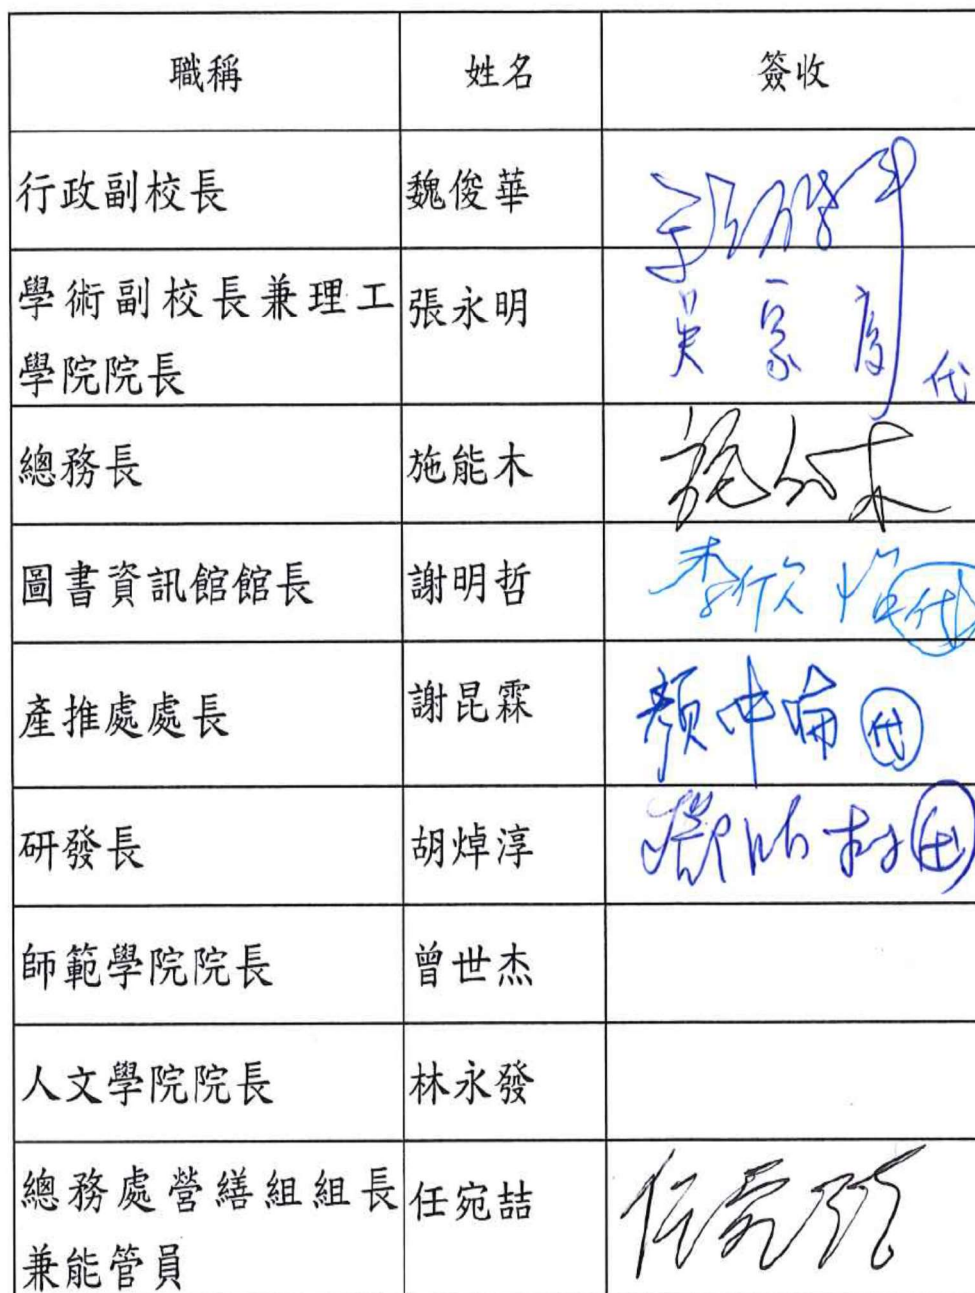 職稱 姓名 簽收
行政副校長 魏俊華
學術副校長兼理工 張永明
學院院長 代
總務長 施能木 施能木
圖書資訊館館長 謝明哲 李欣怡代
產推處處長 謝昆霖 顏沖崙 代
研發長 胡焯淳 代
師範學院院長 曾世杰
人文學院院長 林永發
總務處營繕組組長 任宛喆
兼能管員